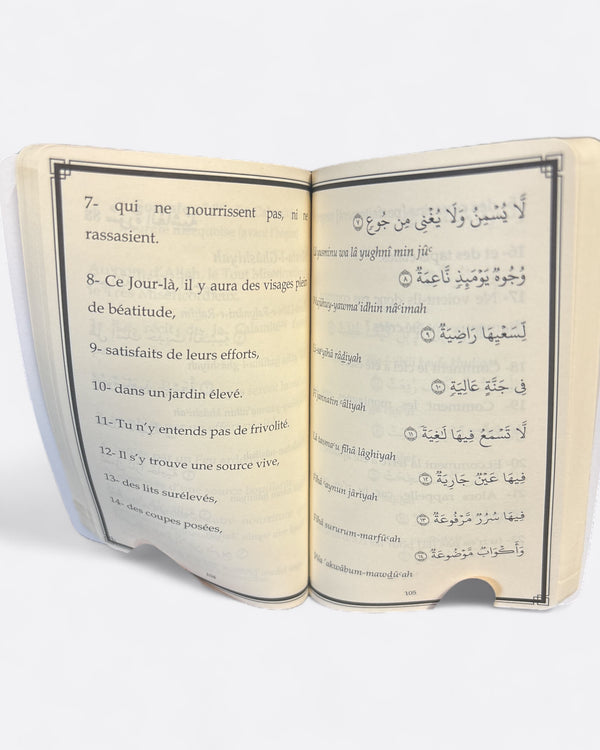 7- qui ne nourrissent pas, ni ne
rassasient.
8- Ce Jour-là, il y aura des visages plein
de béatitude,
9- satisfaits de leurs efforts,
10- dans un jardin élevé.
11- Tu n’y entends pas de frivolité.
12- Il s’y trouve une source vive,
13- des lits surélevés,
14- des coupes posées,
104
لَّا يُسْمِنُ وَلَا يُغْنِى مِن جُوعٍ ٧
yusminu wa lâ yughnî min jûᶜ
وُجُوهٌ يَوْمَئِذٍ نَّاعِمَةٌ ٨
Wujûhuy-yawma’idhin nâᶜimah
لِّسَعْيِهَا رَاضِيَةٌ ٩
Li-saᶜyihâ râḍiyah
فِى جَنَّةٍ عَالِيَةٍ ١٠
Fî jannatin ᶜâliyah
لَّا تَسْمَعُ فِيهَا لَٰغِيَةً ١١
Lâ tasmaᶜu fîhâ lâghiyah
فِيهَا عَيْنٌ جَارِيَةٌ ١٢
Fîhâ ᶜaynun jâriyah
فِيهَا سُرُرٌ مَّرْفُوعَةٌ ١٣
Fîhâ sururum-marfûᶜah
وَأَكْوَابٌ مَّوْضُوعَةٌ ١٤
Wa ’akwâbum-mawḍûᶜah
105